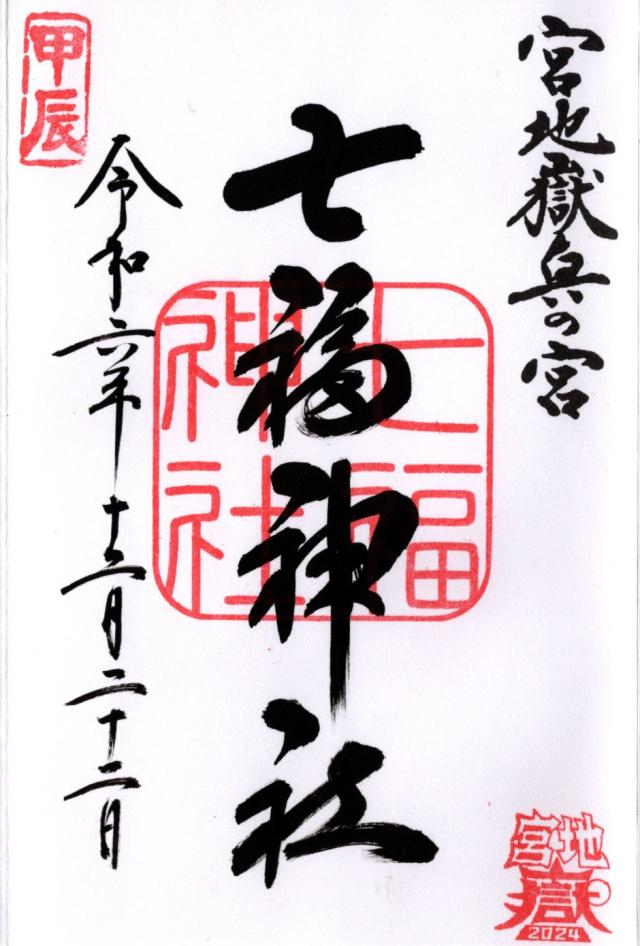 宮地嶽奥の宮
七福神社
七福
神社
甲辰
令和六年十二月二十二日
宮地
嶽
2024